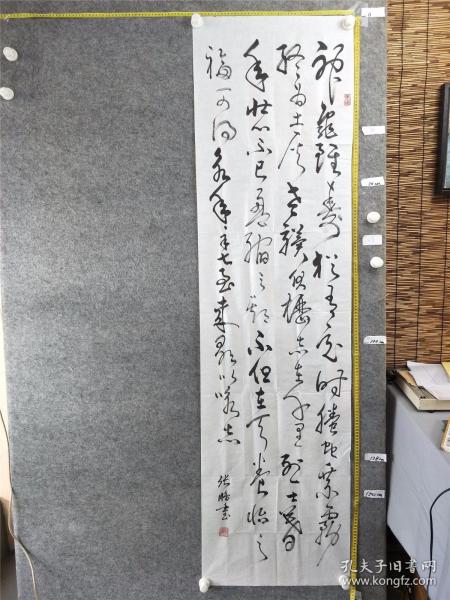 神龜雖壽猶有竟時騰蛇乘霧
終為土灰老驥伏櫪志在千里烈士暮
年壯心不已盈縮之期不但在天養怡之
福可得永年幸甚至哉歌以詠志
孔夫子旧书网
www.kongfz.com